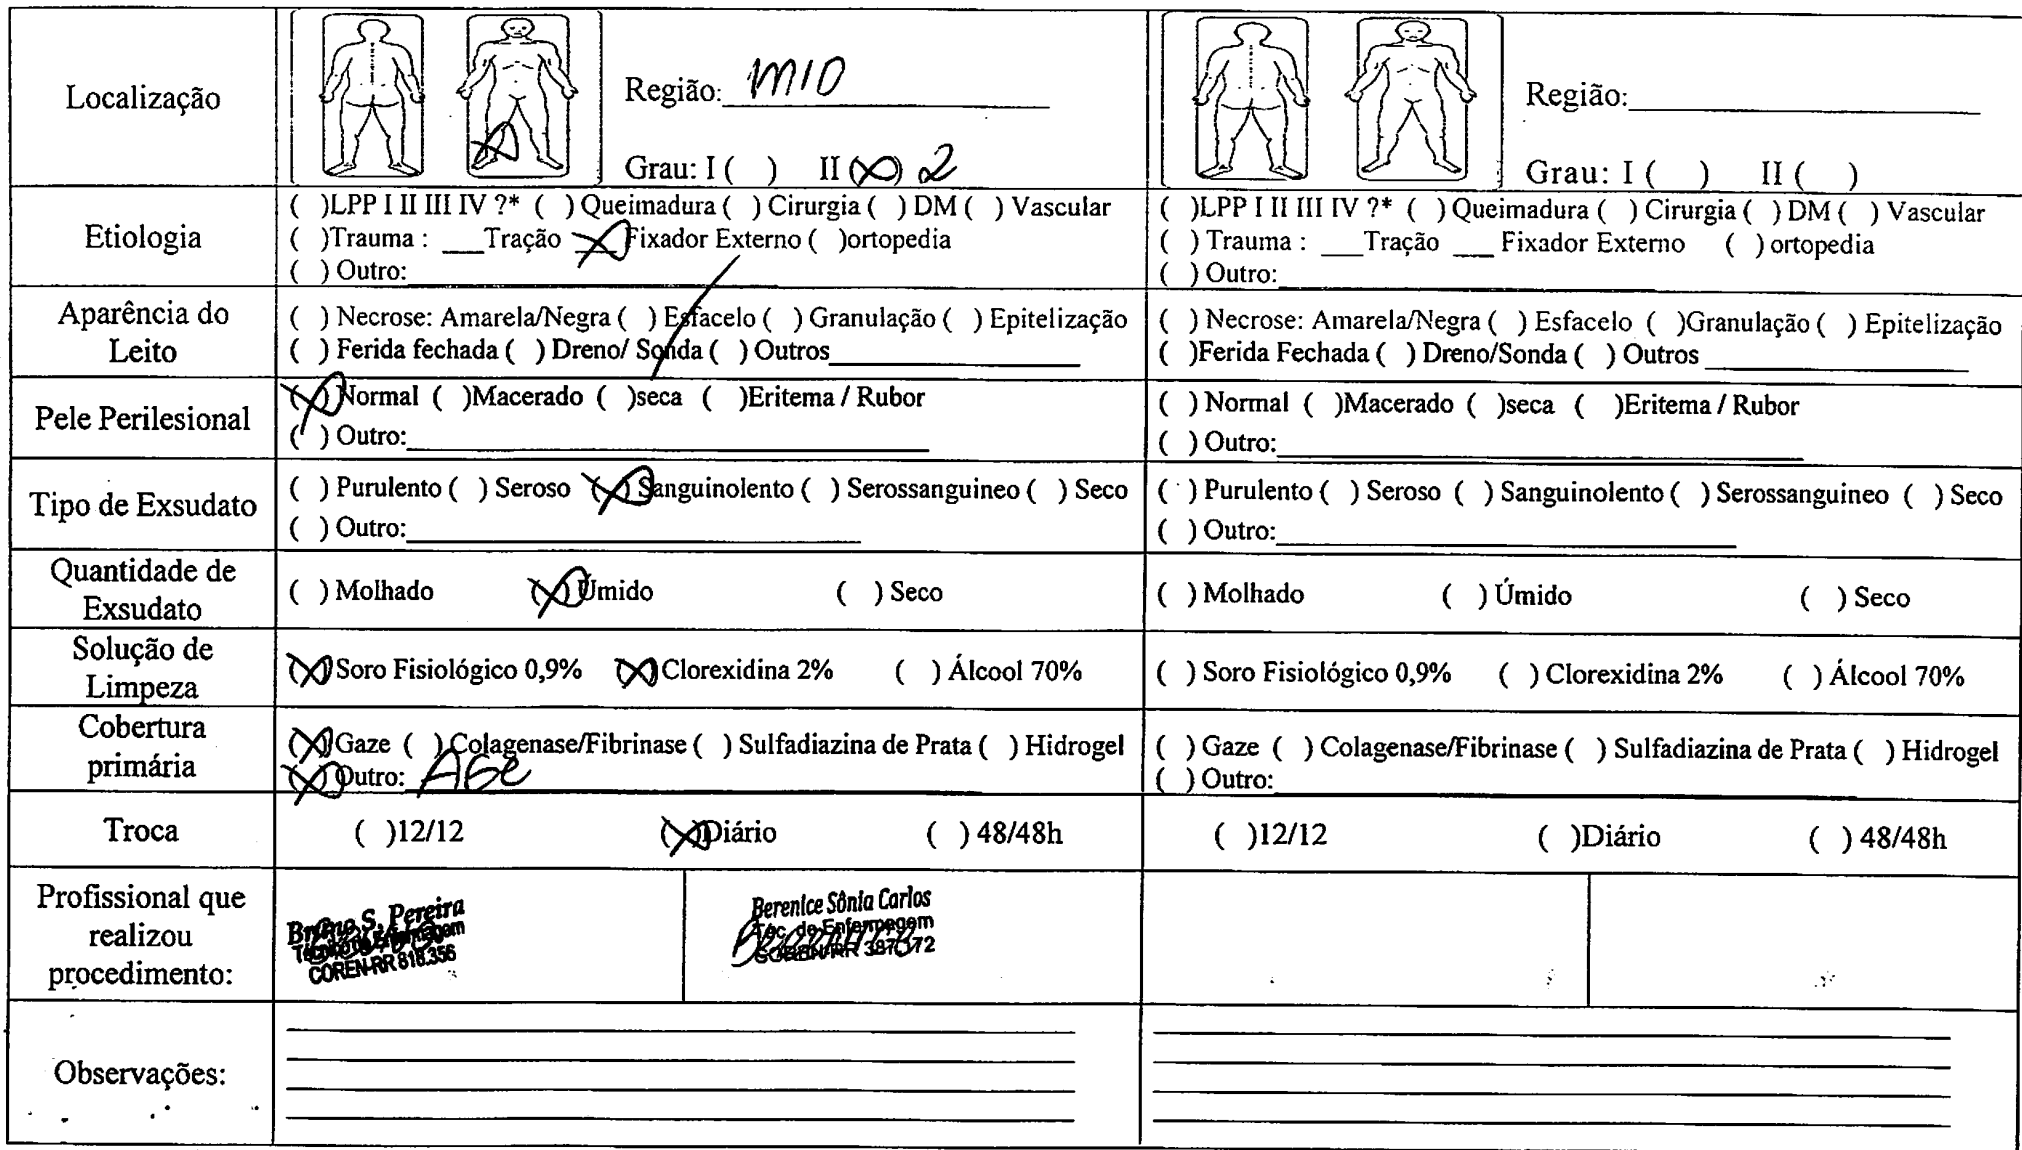 Localização
Região: MID
Grau: I ( ) II (X) 2
Região:
Grau: I ( ) II ( )
Etiologia
( )LPP I II III IV ?* ( ) Queimadura ( ) Cirurgia ( ) DM ( ) Vascular
( )Trauma : ___Tração X Fixador Externo ( )ortopedia
( ) Outro:
( )LPP I II III IV ?* ( ) Queimadura ( ) Cirurgia ( ) DM ( ) Vascular
( ) Trauma : ___Tração ___ Fixador Externo ( ) ortopedia
( ) Outro:
Aparência do
Leito
( ) Necrose: Amarela/Negra ( ) Esfacelo ( ) Granulação ( ) Epitelização
( ) Ferida fechada ( ) Dreno/ Sonda ( ) Outros
( ) Necrose: Amarela/Negra ( ) Esfacelo ( )Granulação ( ) Epitelização
( )Ferida Fechada ( ) Dreno/Sonda ( ) Outros
Pele Perilesional
(X) Normal ( )Macerado ( )seca ( )Eritema / Rubor
( ) Outro:
( ) Normal ( )Macerado ( )seca ( )Eritema / Rubor
( ) Outro:
Tipo de Exsudato
( ) Purulento ( ) Seroso (X) Sanguinolento ( ) Serossanguineo ( ) Seco
( ) Outro:
( ) Purulento ( ) Seroso ( ) Sanguinolento ( ) Serossanguineo ( ) Seco
( ) Outro:
Quantidade de
Exsudato
( ) Molhado (X) Úmido ( ) Seco
( ) Molhado ( ) Úmido ( ) Seco
Solução de
Limpeza
(X) Soro Fisiológico 0,9% (X) Clorexidina 2% ( ) Álcool 70%
( ) Soro Fisiológico 0,9% ( ) Clorexidina 2% ( ) Álcool 70%
Cobertura
primária
(X) Gaze ( ) Colagenase/Fibrinase ( ) Sulfadiazina de Prata ( ) Hidrogel
(X) Outro: AGE
( ) Gaze ( ) Colagenase/Fibrinase ( ) Sulfadiazina de Prata ( ) Hidrogel
( ) Outro:
Troca
( )12/12 (X)Diário ( ) 48/48h
( )12/12 ( )Diário ( ) 48/48h
Profissional que
realizou
procedimento:
Bruno S. Pereira
Técnico de Enfermagem
COREN-RR 818.356
Berenice Sônia Carlos
Téc. de Enfermagem
COREN/RR 387.172
Berenice
Observações: